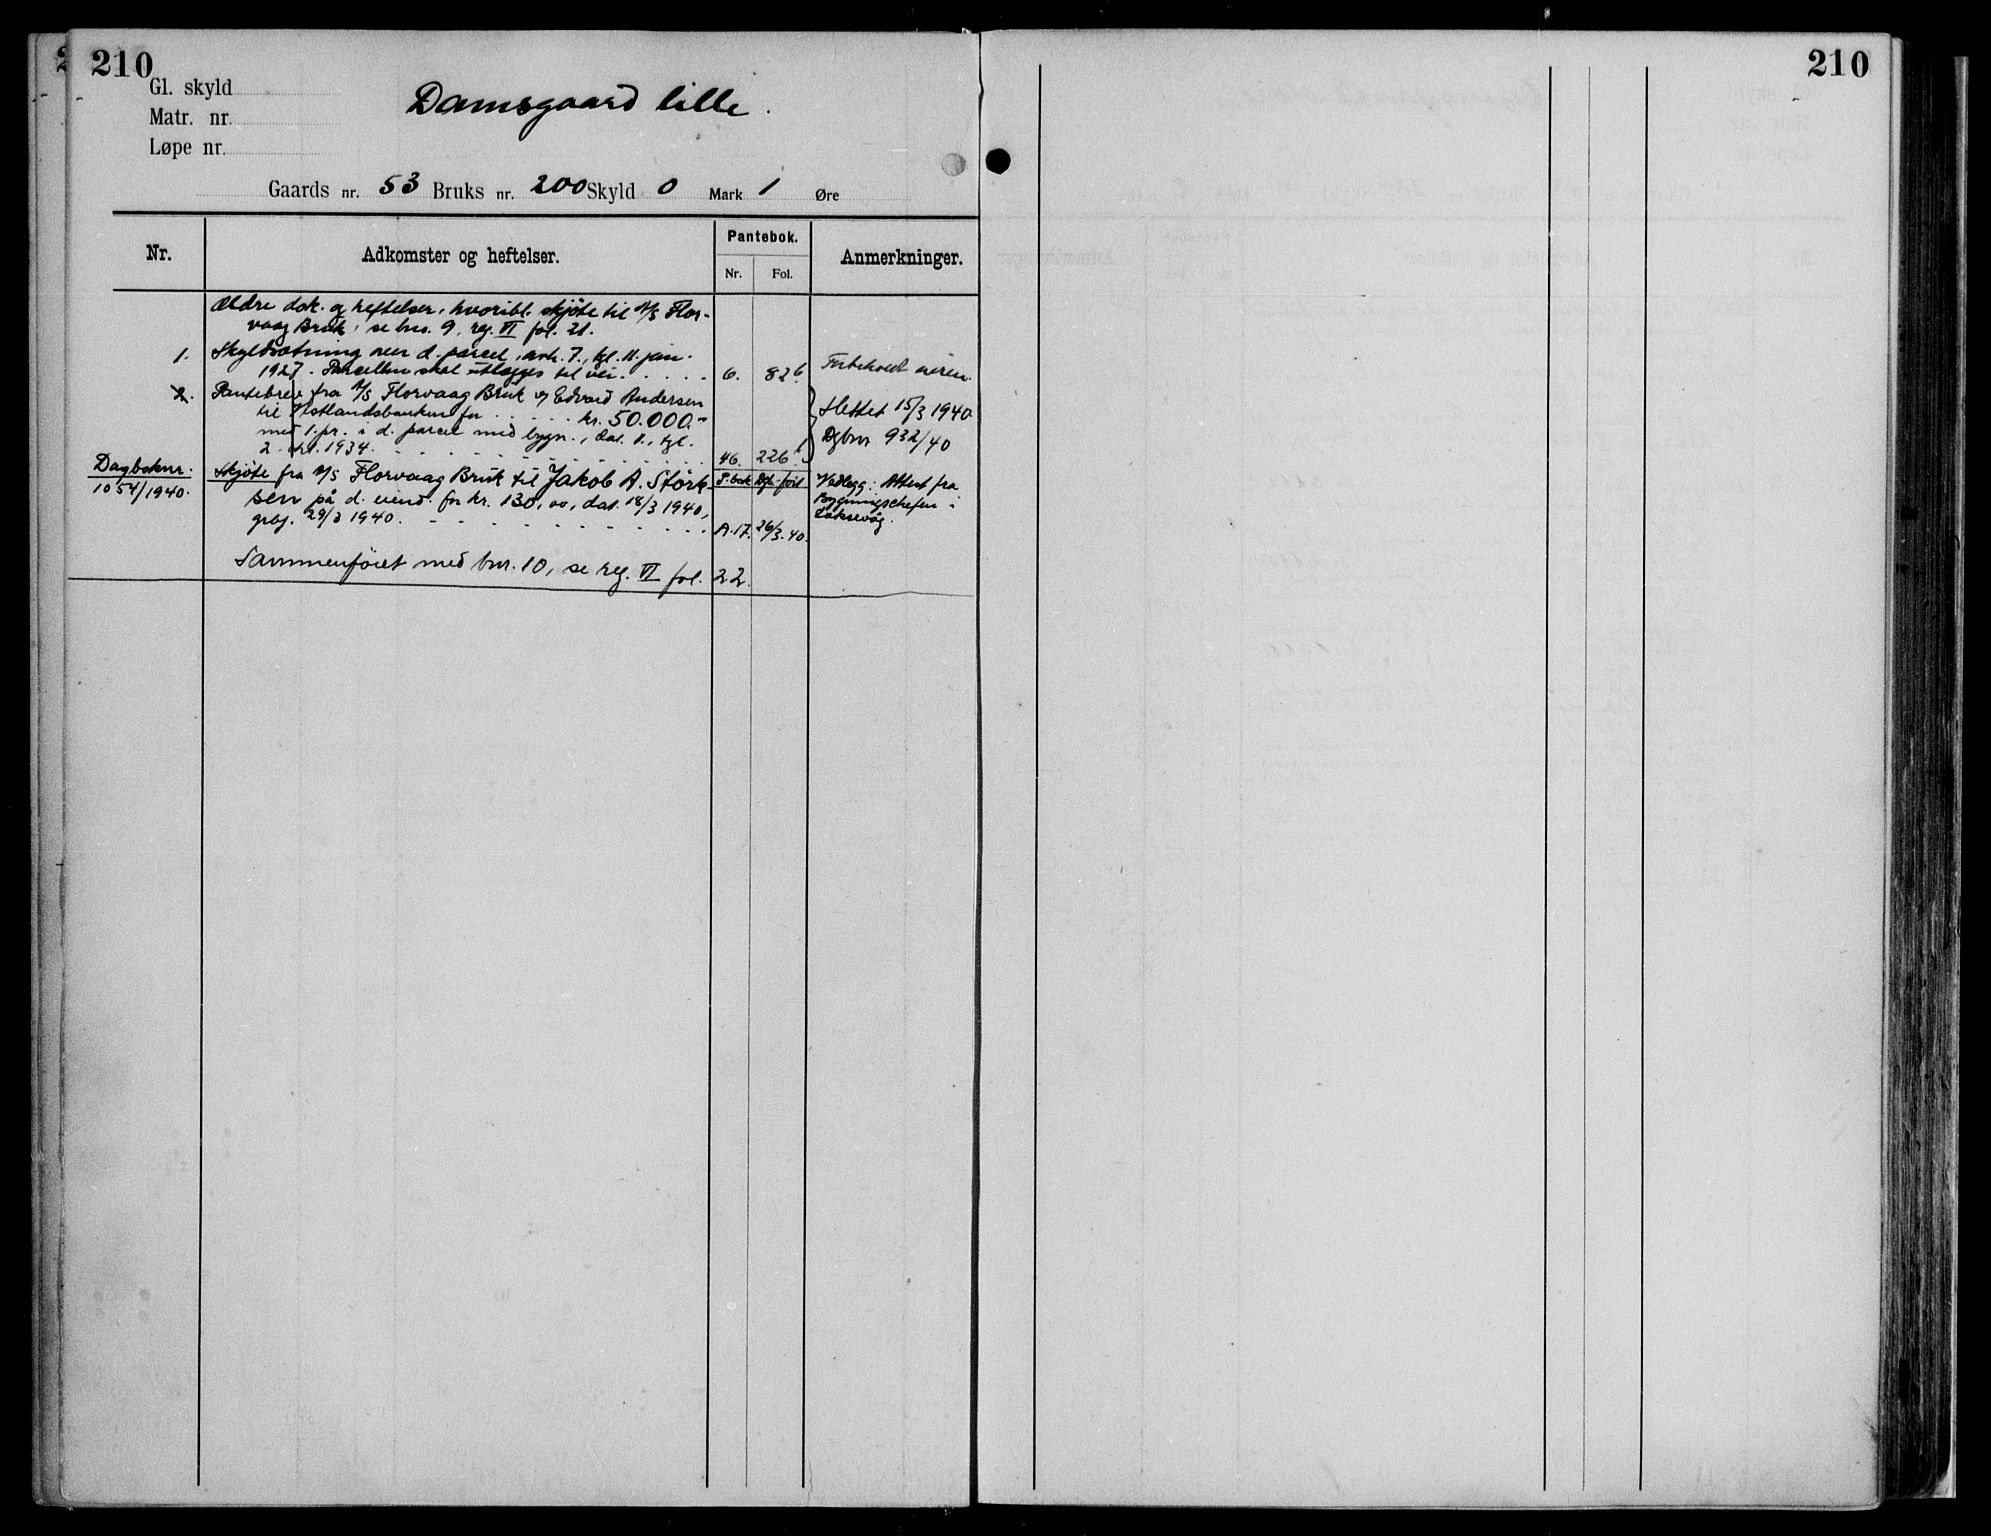 210
210
Gl. skyld
Matr. nr.
Løpe nr.
Damsgaard lille.
Gaards nr. 53 Bruks nr. 200 Skyld 0 Mark 1 Øre
Nr.
Adkomster og heftelser.
Pantebok.
Nr.
Fol.
Anmerkninger.
Ældre dok. og heftelser, hvoribl. skjöte til A/S Flor-
vaag Bruk, se bno. 9, reg. VI fol. 21.
1. Skyldsætning over d. parcel, avh. 7., tgl. 11. jan.
1927. Parcellen skal utlægges til vei. 6. 826.
2. Pantebrev fra A/S Florvaag Bruk og Edvard Andersen
til Vestlandsbanken for kr. 50.000.-
med 1. pr. i d. parcel med bygn., dat. 1., tgl.
2. 1934. 46. 226.
Slettet 15/3 1940
Dgbnr 932/40
Dagboknr.
1054/1940.
Skjöte fra A/S Florvaag Bruk til Jakob A. Störk-
sen på d. eiend. for kr. 130,00, dat. 18/3 1940,
grbj. 29/3 1940.
P. bok Dgb. fört
A. 17. 26/3. 40.
Vedlegg: Attest fra
Bygningschefen i
Laksevåg.
Sammenföiet med bnr. 10, se reg. VI fol. 22.